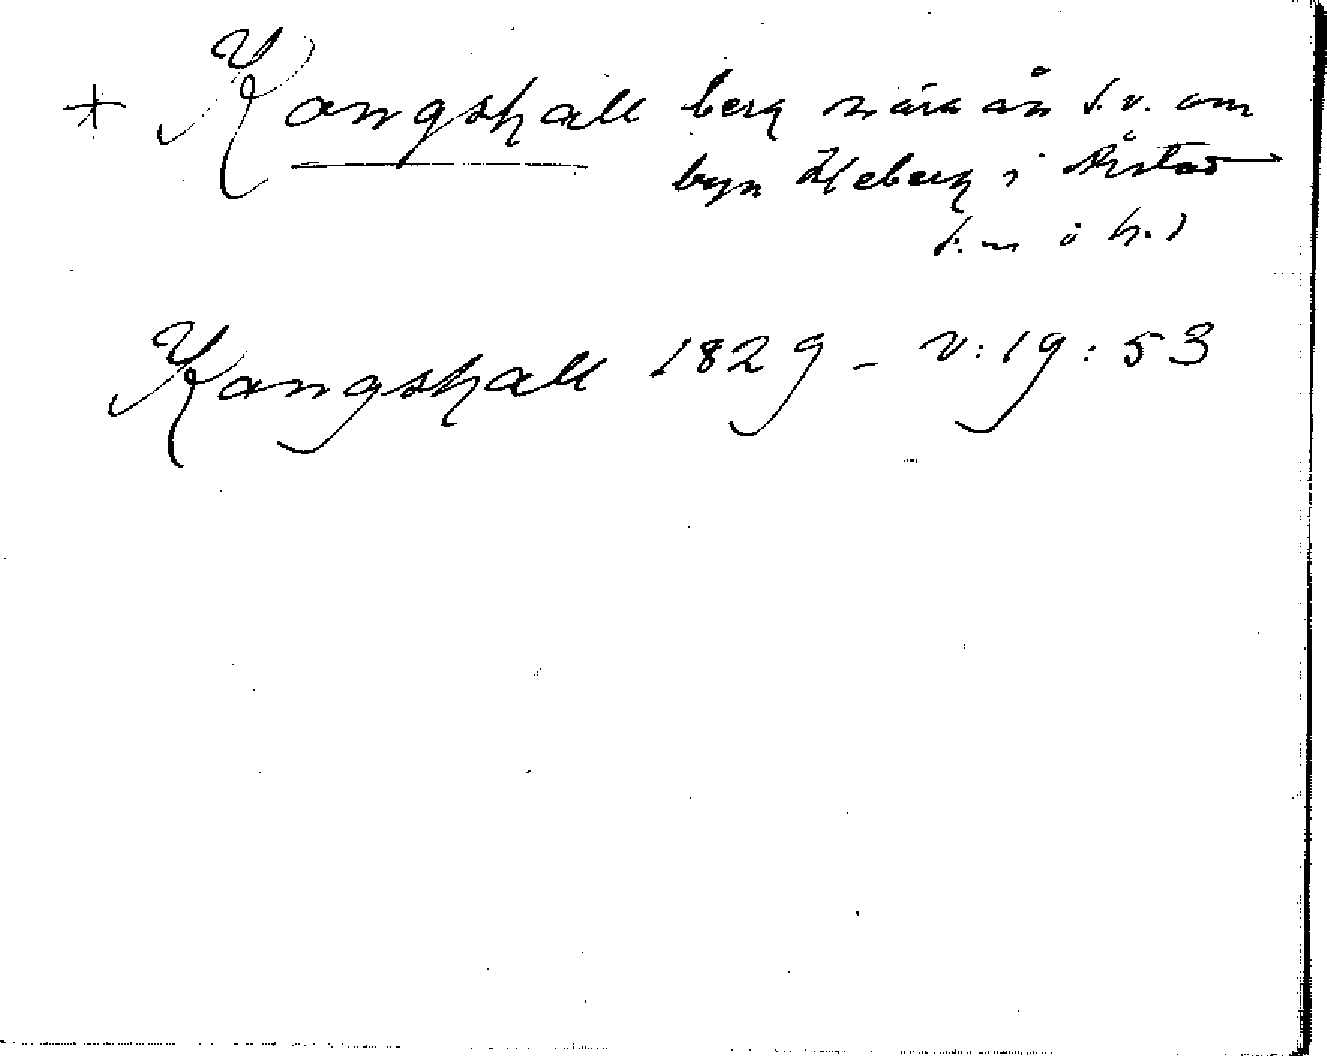 + Kangshall berg nära ån s.v. om
byn Heberg i Årstad
s. n ö h.)
Kangshall 1829 - V:19:53